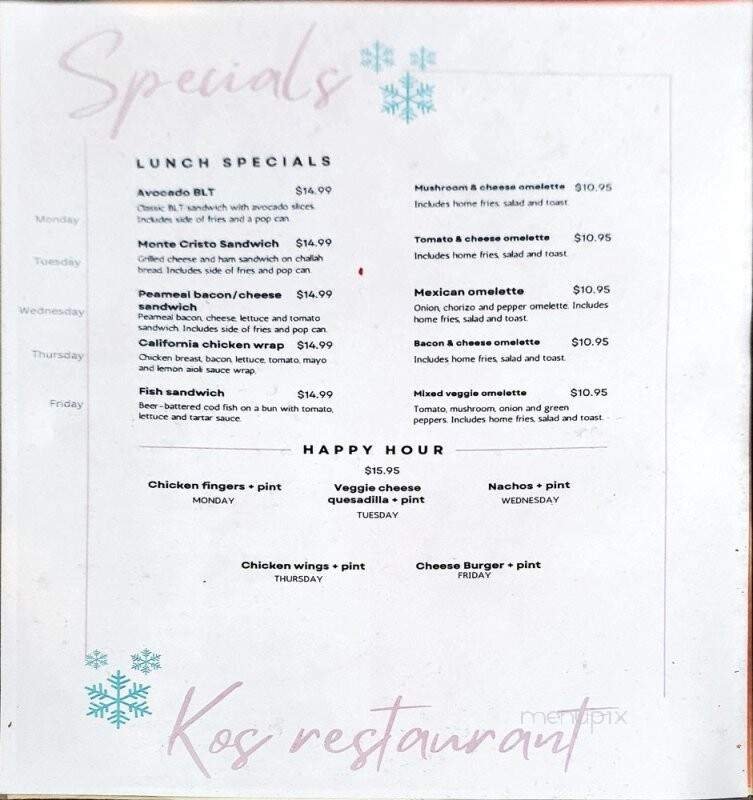 Specials
LUNCH SPECIALS
Monday
Avocado BLT $14.99
Classic BLT sandwich with avocado slices.
Includes side of fries and a pop can.
Mushroom & cheese omelette $10.95
Includes home fries, salad and toast.
Tuesday
Monte Cristo Sandwich $14.99
Grilled cheese and ham sandwich on challah
bread. Includes side of fries and pop can.
Tomato & cheese omelette $10.95
Includes home fries, salad and toast.
Wednesday
Peameal bacon/cheese $14.99
sandwich
Peameal bacon, cheese, lettuce and tomato
sandwich. Includes side of fries and pop can.
Mexican omelette $10.95
Onion, chorizo and pepper omelette. Includes
home fries, salad and toast.
Thursday
California chicken wrap $14.99
Chicken breast, bacon, lettuce, tomato, mayo
and lemon aioli sauce wrap.
Bacon & cheese omelette $10.95
Includes home fries, salad and toast.
Friday
Fish sandwich $14.99
Beer-battered cod fish on a bun with tomato,
lettuce and tartar sauce.
Mixed veggie omelette $10.95
Tomato, mushroom, onion and green
peppers. Includes home fries, salad and toast.
HAPPY HOUR
$15.95
Chicken fingers + pint
MONDAY
Veggie cheese
quesadilla + pint
TUESDAY
Nachos + pint
WEDNESDAY
Chicken wings + pint
THURSDAY
Cheese Burger + pint
FRIDAY
Kos restaurant
menupix